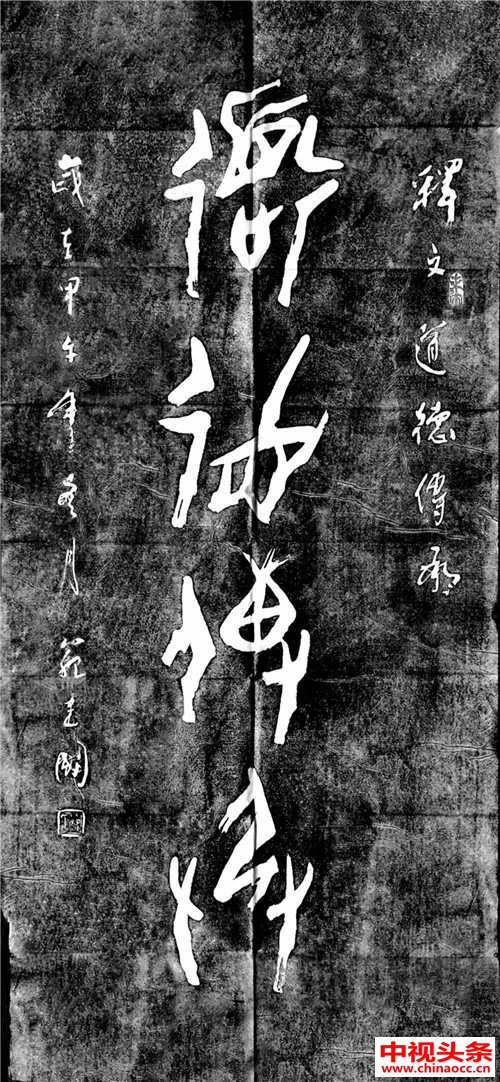 釋文道德傳承
道德傳承
歲在甲午年冬月
中视头条
www.chinaocc.cn